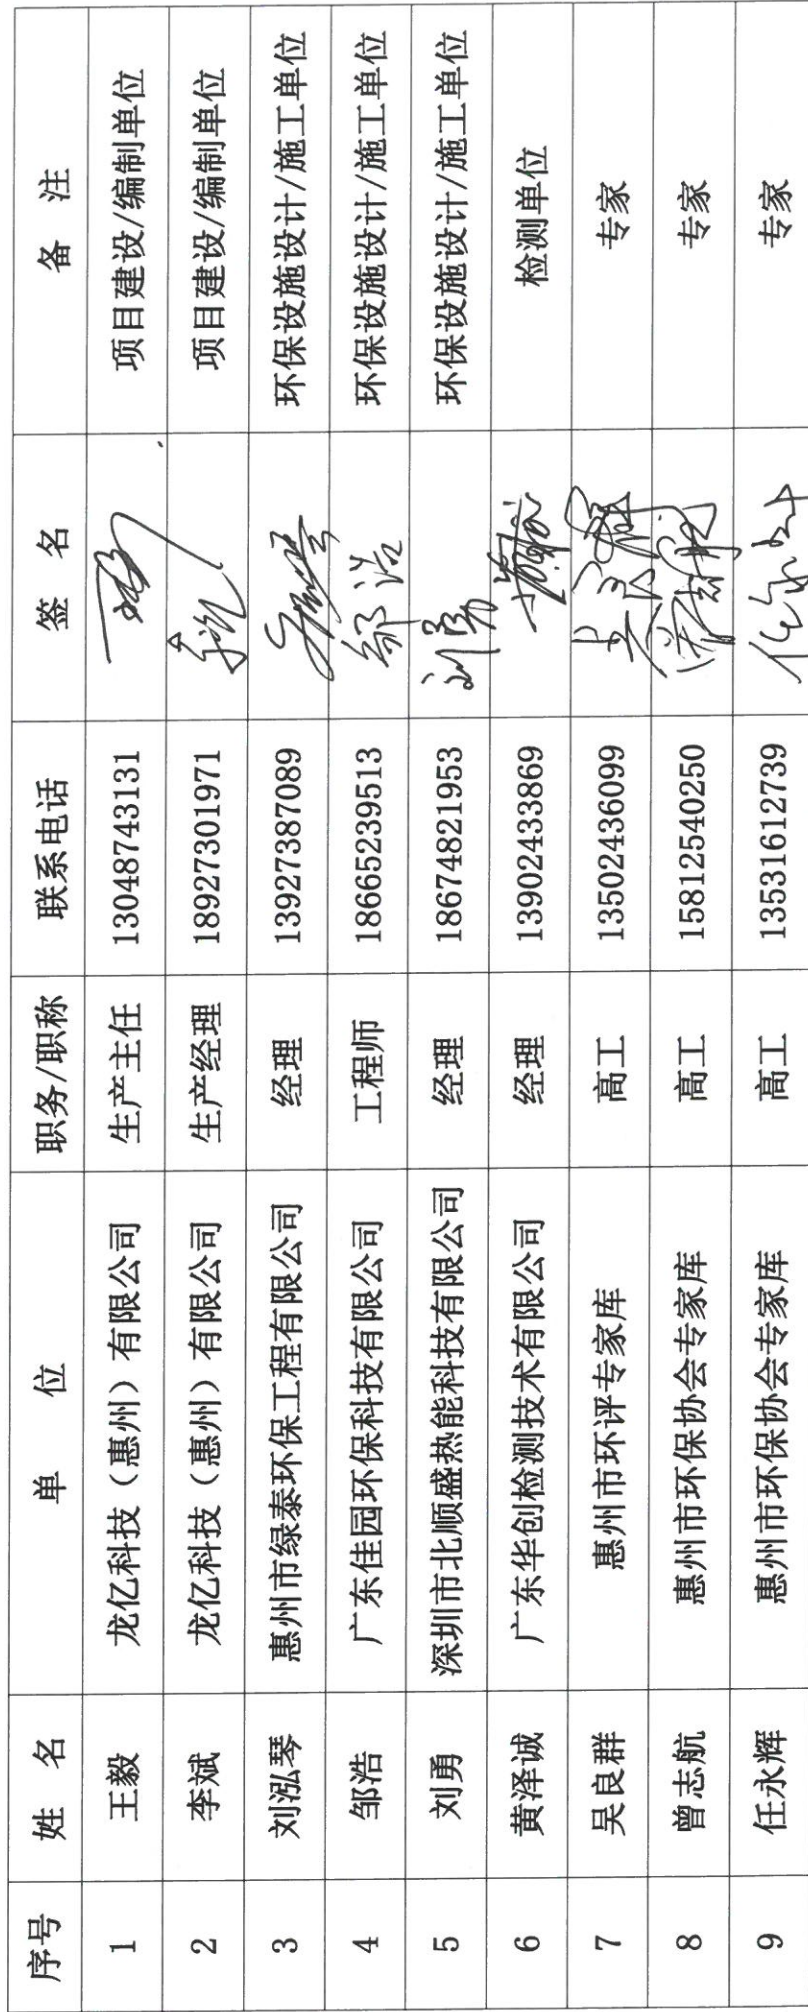 序号 姓 名 单 位 职务/职称 联系电话 签 名 备 注
1 王毅 龙亿科技（惠州）有限公司 生产主任 13048743131 项目建设/编制单位
2 李斌 龙亿科技（惠州）有限公司 生产经理 18927301971 项目建设/编制单位
3 刘泓琴 惠州市绿泰环保工程有限公司 经理 13927387089 环保设施设计/施工单位
4 邹浩 广东佳园环保科技有限公司 工程师 18665239513 邹浩 环保设施设计/施工单位
5 刘勇 深圳市北顺盛热能科技有限公司 经理 18674821953 刘勇 环保设施设计/施工单位
6 黄泽诚 广东华创检测技术有限公司 经理 13902433869 检测单位
7 吴良群 惠州市环评专家库 高工 13502436099 专家
8 曾志航 惠州市环保协会专家库 高工 15812540250 专家
9 任永辉 惠州市环保协会专家库 高工 13531612739 专家